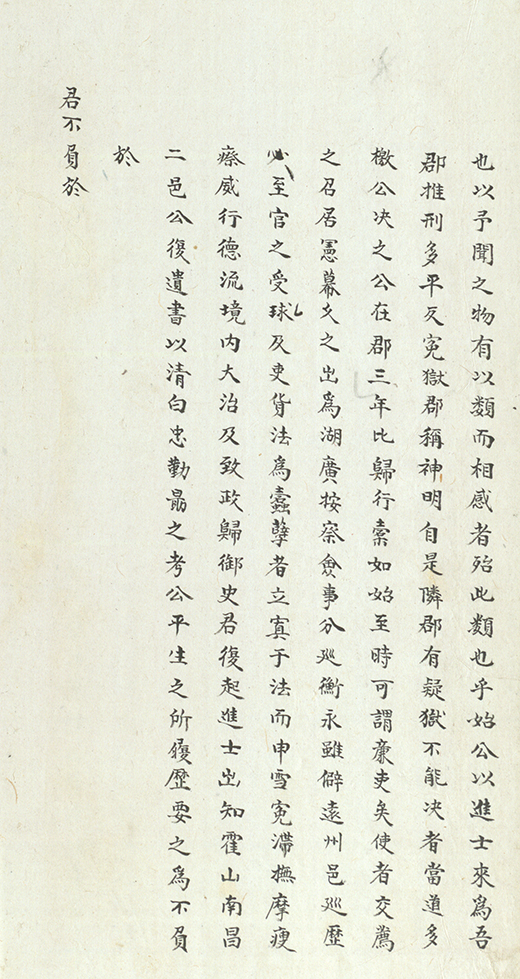 也以予聞之物有以類而相感者殆此類也乎始公以進士來爲吾
郡推刑多平反冤獄郡稱神明自是隣郡有疑獄不能决者當道多
檄公决之公在郡三年比歸行橐如始至時可謂亷吏矣使者交薦
之召居憲幕久之出爲湖廣按察僉事分廵衡永雖僻遠州邑廵歷
必至官之受球及吏貨法爲蠹孽者立寘于法而申雪冤滯撫摩瘦
瘵威行德流境内大治及致政歸御史君復起進士出知霍山南昌
二邑公復遺書以清白忠勤勗之考公平生之所履歷要之爲不負
於
君不負於